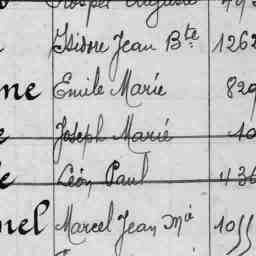 Prosper Auguste
Isidore Jean Bte 1262
ne Emile Marie 829
e Joseph Marie 10
e Léon Paul 436
nel Marcel Jean Mie 1055